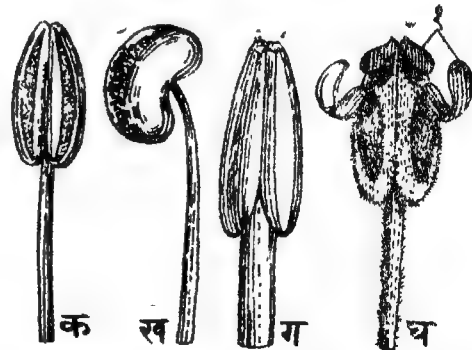 क ख ग घ